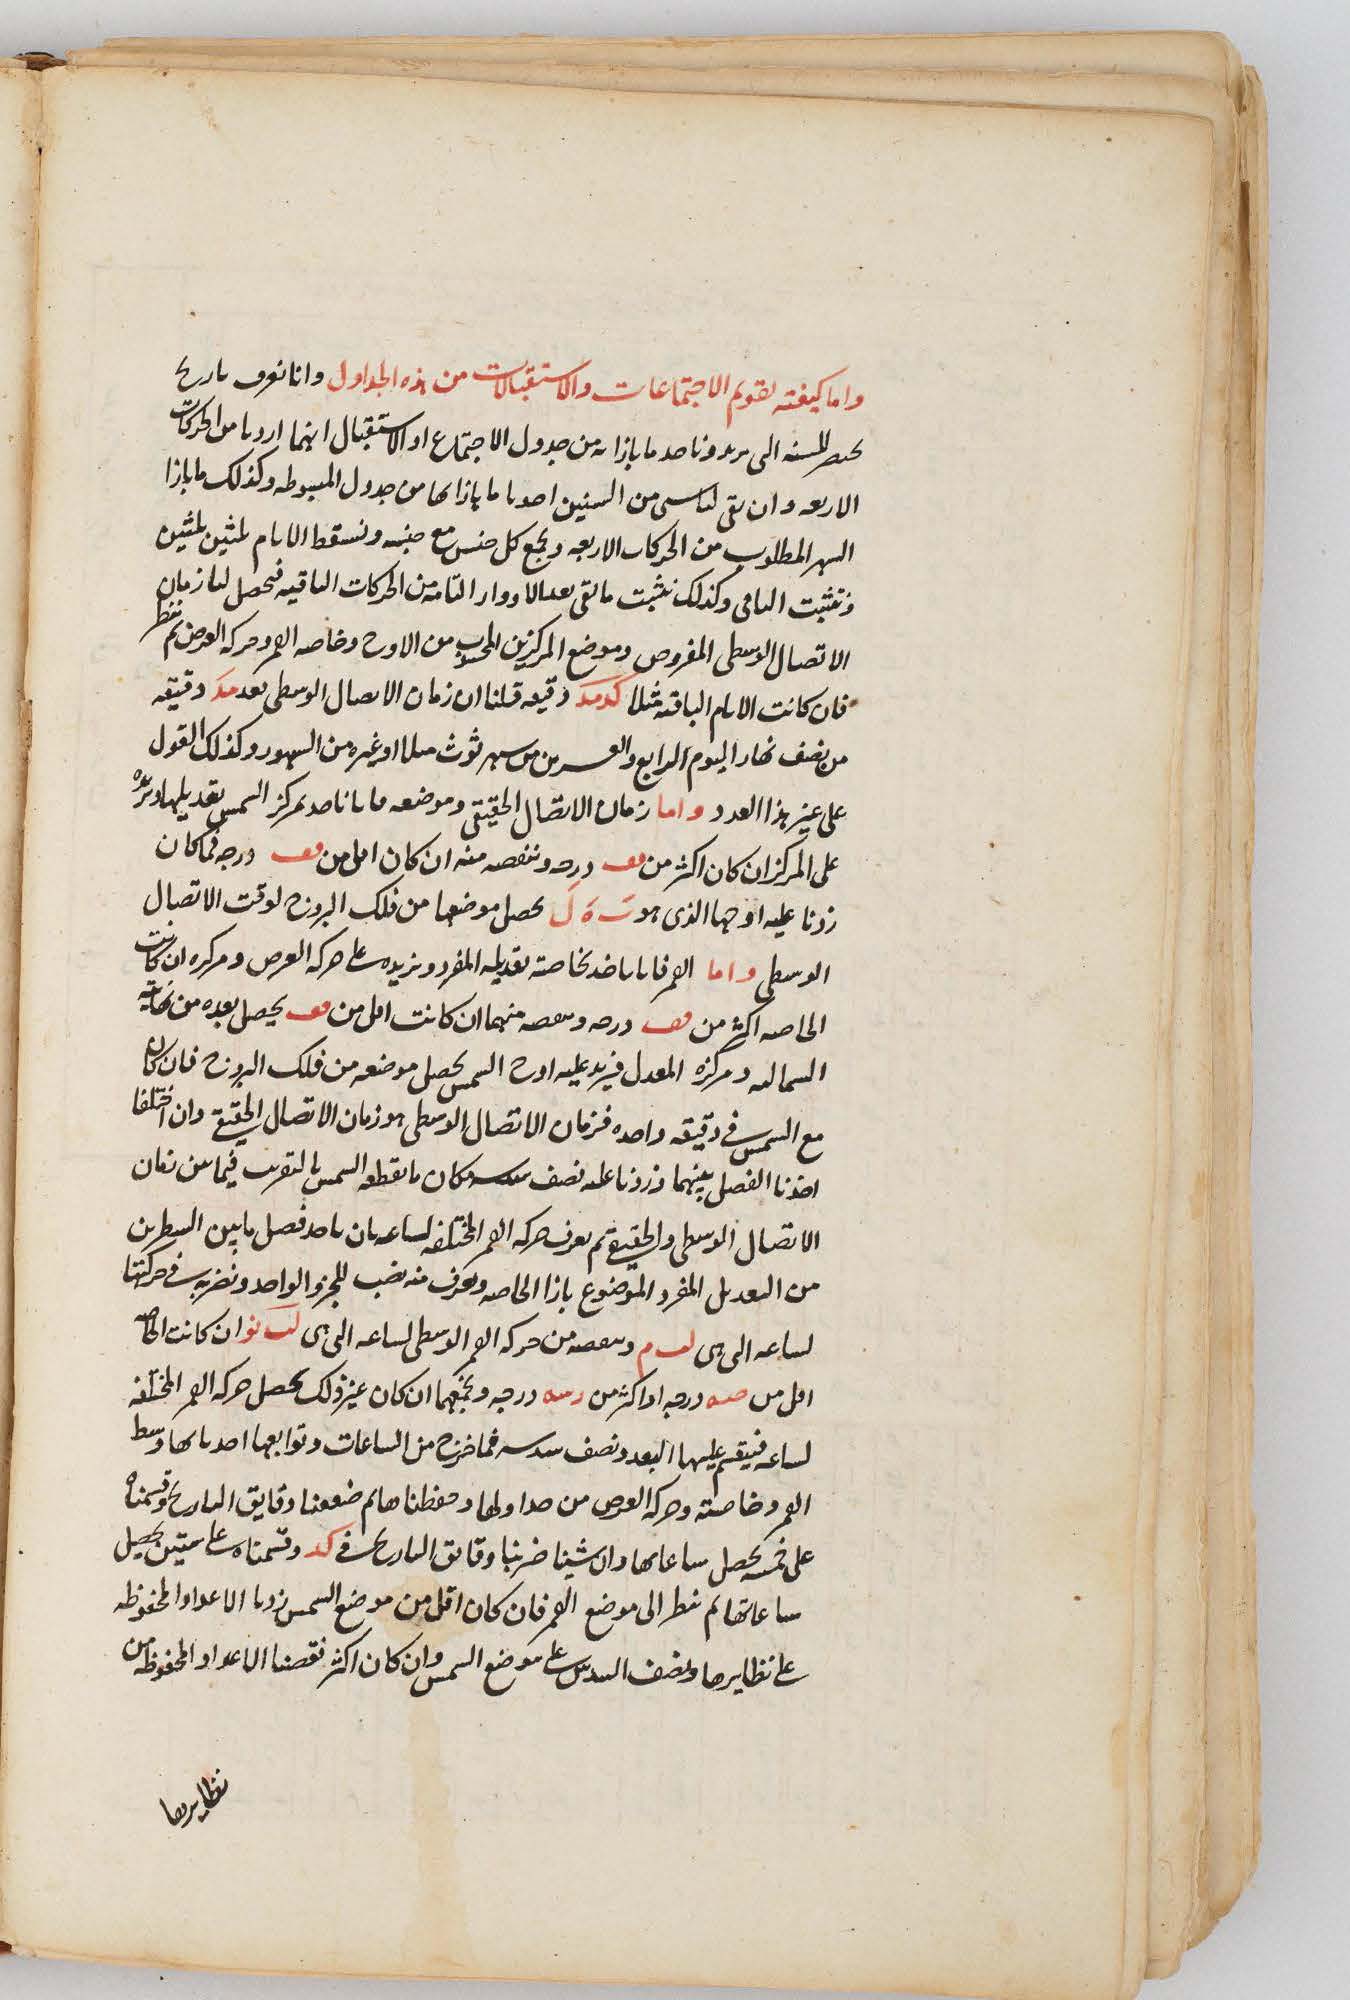 واما كيفية تقويم الاجتماعات والاستقبالات من هذه الجداول وانا نعرف تاريخ
بختنصر للسنة التي نريد وناخذ ما بازائه من جدول الاجتماع او الاستقبال ايهما اردنا من الحركات
الاربعة وان بقي لنا شي من السنين اخذنا ما بازائها من جدول المبسوطة وكذلك ما بازا
الشهر المطلوب من الحركات الاربعة ونجمع كل جنس مع جنسه ونسقط الايام ثلثين ثلثين
ونثبت الباقي وكذلك نثبت ما بقي بعد الادوار التامة من الحركات الباقية فيحصل لنا زمان
الاتصال الوسطي المفروض وموضع المركزين المحسوب من الاوج وخاصة القمر وحركة العرض ثم ننظر
فان كانت الايام الباقية مثلا كد مد دقيقة قلنا ان زمان الاتصال الوسطي بعد مد دقيقة
من نصف نهار اليوم الرابع والعشرين من شهر ثوث مثلا او غيره من الشهور وكذلك القول
على غير هذا العدد واما زمان الاتصال الحقيقي وموضعه فانا ناخذ بمركز الشمس تعديلها ونزيده
على المركز ان كان اكثر من قف درجة وننقصه منه ان كان اقل من قف درجة فما كان
زدنا عليه اوجها الذي هو يحصل موضعها من فلك البروج لوقت الاتصال
الوسطي واما القمر فانا ناخذ بخاصته تعديله المفرد ونزيده على حركة العرض ومركزه ان كانت
الخاصة اكثر من قف درجة وننقصه منهما ان كانت اقل من قف يحصل بعده من نهايته
الشمالية ومركزه المعدل فنزيد عليه اوج الشمس يحصل موضعه من فلك البروج فان كان
مع الشمس في دقيقة واحدة فزمان الاتصال الوسطي هو زمان الاتصال الحقيقي وان اختلفا
اخذنا الفصل بينهما وزدنا عليه نصف سدسه مكان ما تقطعه الشمس بالتقريب فيما بين زمان
الاتصال الوسطي والحقيقي ثم نعرف حركة القمر المختلفة لساعة بان ناخذ فصل ما بين السطرين
من التعديل المفرد الموضوع بازا الخاصة ونعرف منه نصيب للجزو الواحد ونضربه في حركتها
لساعة التي هي لب م وننقصه من حركة القمر الوسطي لساعة التي هي لب نو ان كانت الخاصة
اقل من صه درجة او اكثر من رسه درجة ونجمعهما ان كان غير ذلك يحصل حركة القمر المختلفة
لساعة فنقسم عليها البعد ونصف سدسه فما خرج من الساعات وتوابعها اخذنا لها وسط
القمر وخاصته وحركة العرض من جداولها وحفظناها ثم ضعفنا دقايق التاريخ وقسمناه
على خمسة يحصل ساعاتها وان شينا ضربنا دقايق التاريخ في كد وقسمناه على ستين يحصل
ساعاتها ثم ننظر الى موضع القمر فان كان اقل من موضع الشمس زدنا الاعداد المحفوظة
على نظايرها ونصف السدس على موضع الشمس وان كان اكثر نقصنا الاعداد المحفوظة من
نظايرها